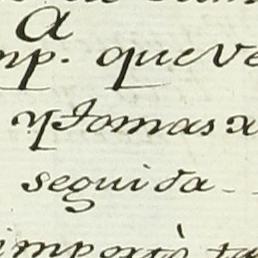 a
mp. que ve
y Tomas
seguida
importó